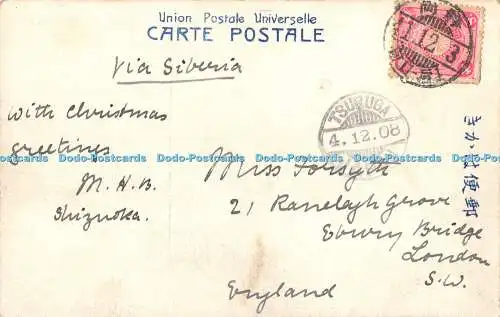 Union Postale Universelle
CARTE POSTALE
Via Siberia
With Christmas
greetings
M. H. B.
Shizuoka.
TSURUGA
4.12.08
Miss Forsyth
21 Ranelagh Grove
Ebury Bridge
London
S.W.
England
きがは便郵
Dodo-Postcards Dodo-Postcards Dodo-Postcards Dodo-Postcards Dodo-Postcards